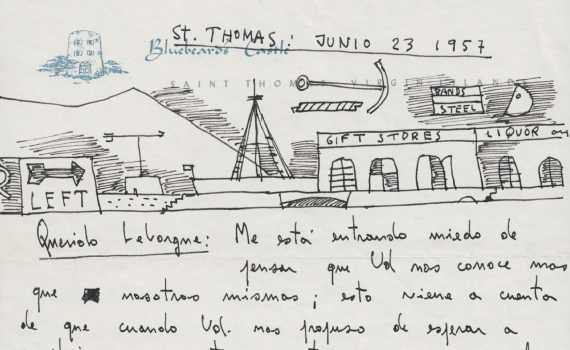 St. THOMAS: JUNIO 23 1957
Bluebeard's Castle
SAINT THOMAS, VIRGIN ISLANDS
BANDS
STEEL
GIFT STORES
LIQUOR
LEFT
Querido Leborgne: Me está entrando miedo de
pensar que Ud nos conoce mas
que nosotros mismos; esto viene a cuenta
de que cuando Ud. nos propuso de esperar a